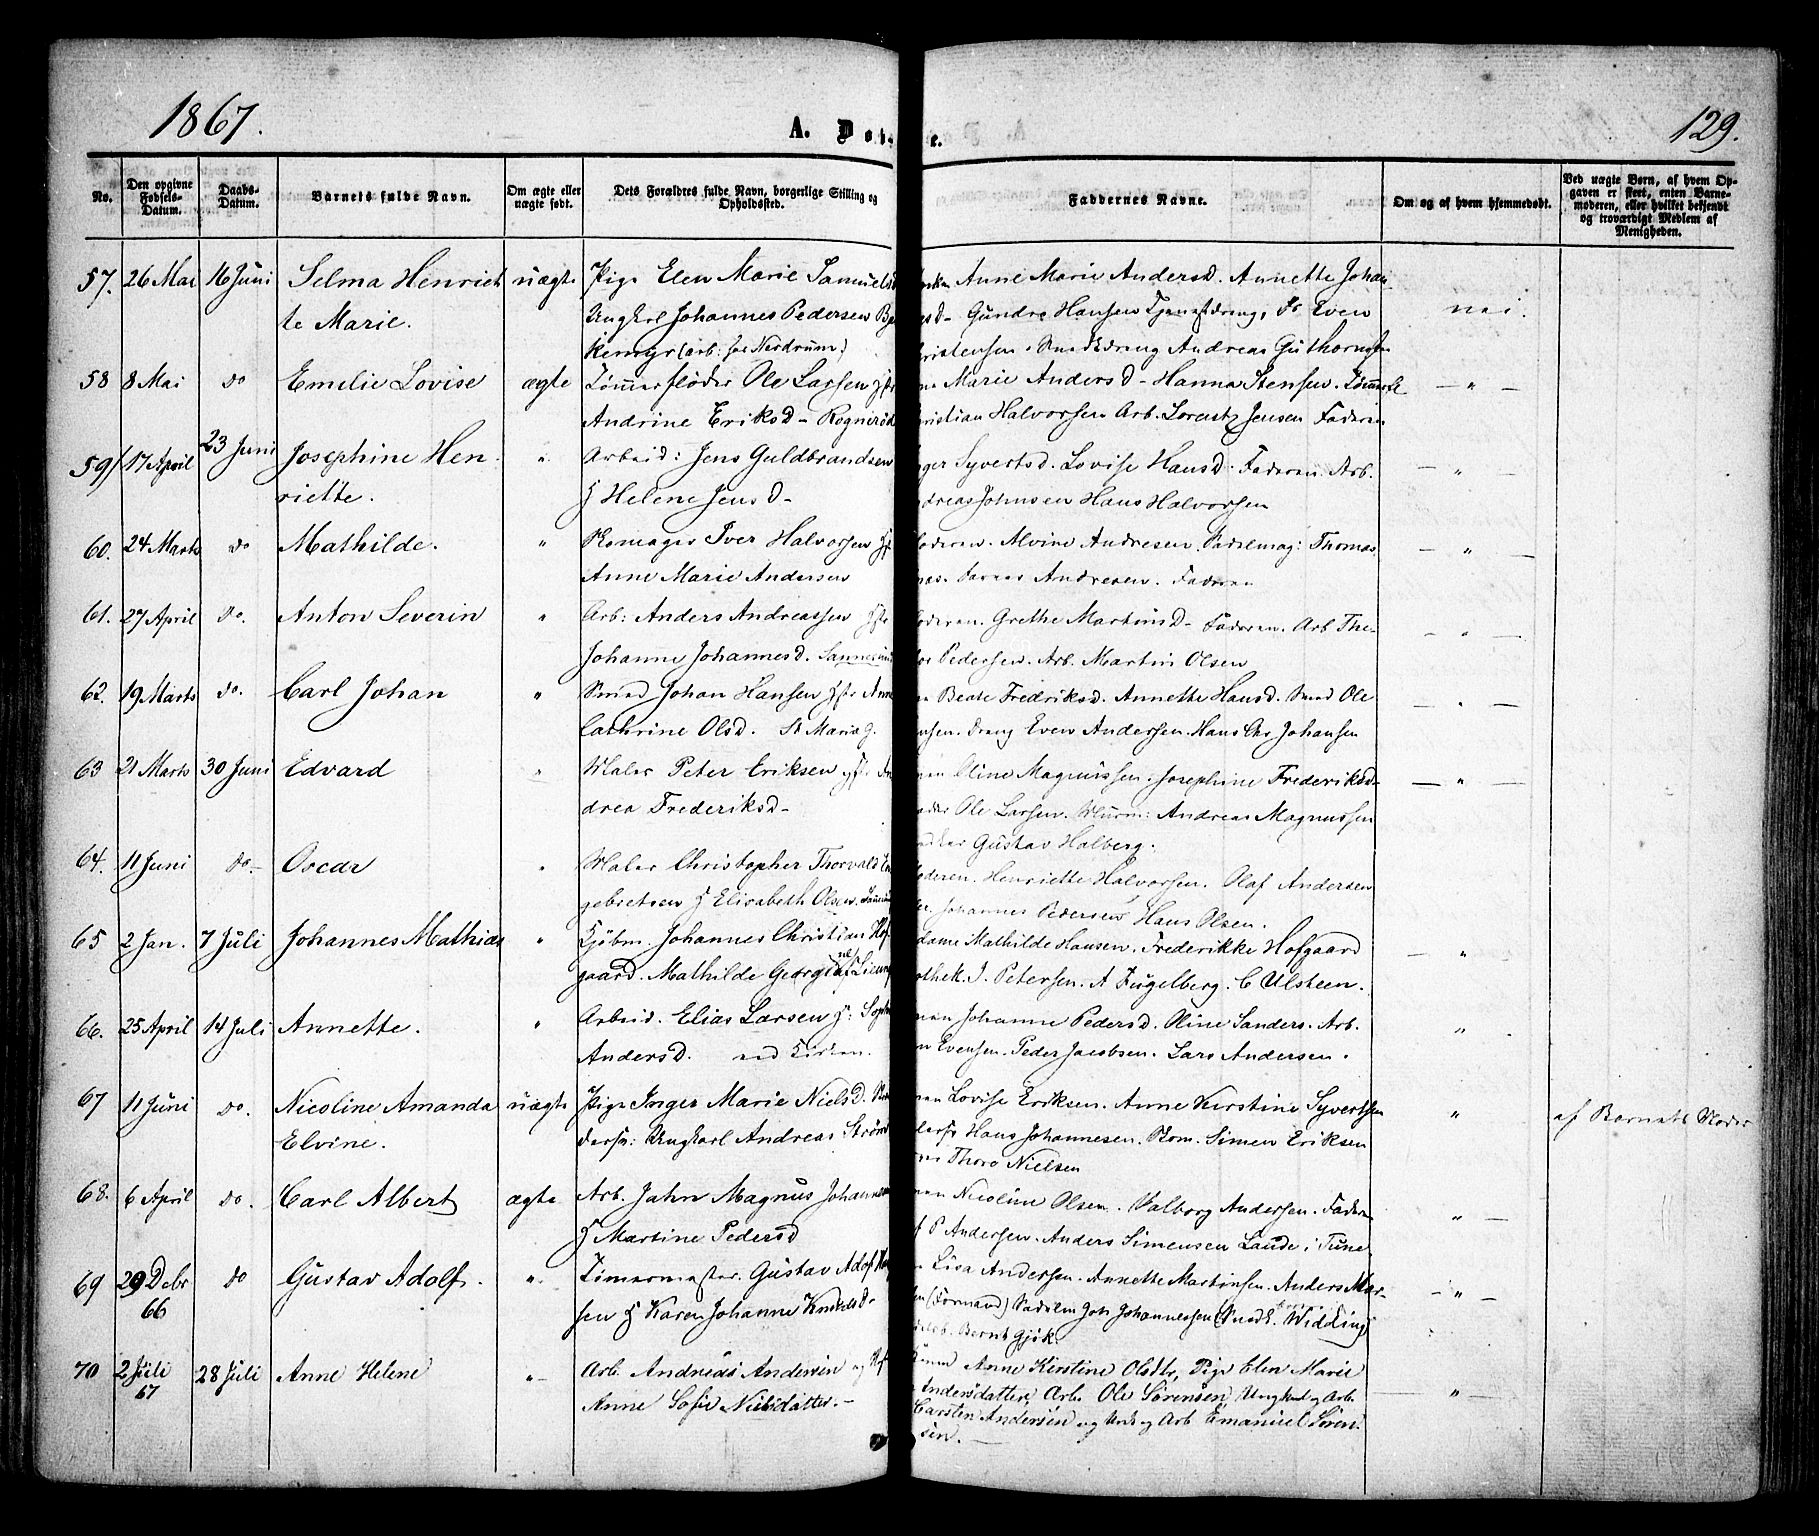 1867.
A. Dø
e.
129.
No.
Den opgivne Fødsels-Datum.
Daabs-Datum.
Barnets fulde Navn.
Om ægte eller uægte født.
Dets Forældres fulde Navn, borgerlige Stilling og Opholdssted.
Faddernes Navne.
Om og af hvem hjemmedøbt.
Ved uægte Børn, af hvem Opgaven er skeet, enten Barnemoderen, eller hvilket bekjendt og troværdigt Medlem af Menigheden.
57. 26 Mai 16 Juni Selma Henriet uægte Pige Elen Marie Samuelsd Anne Marie Andersd. Annette Johan
te Marie. Ungkarl Johannes Pedersen sd- Gundre Hansen Tjenestdreng, Even nei.
kemyr (arb: hos Nordrum) ristensen. Smededreng Andreas Guthormsen
58 8 Mai do Emilie Lovise ægte Tømmerfløder Ole Larsen Marie Andersd- Hanna Stensen. — " —
Andrine Eriksd- Rognerød ristian Halvorsen Arb. Lorentz Jensen Faderen
59 17 April 23 Juni Josephine Hen " Arbeid: Jens Guldbrandsen nger Syvertsd. Lovise Hansd. Faderen. Arb. — " —
riette. & Helene Jensd- ndreas Johnsen Hans Halvorsen
60. 24 Marts do Mathilde. " Iver Halvorsen oderen. Alvine Andresen. Sadelmag: Thomas — " —
Anne Marie Andersen Andresen. Faderen
61. 27 April do. Anton Severin " Arb: Anders Andreassen oderen. Grethe Martinsd- Faderen. Arb The- — " —
Johanne Johannesd. Sannesund Pedersen. Arb. Martin Olsen
62. 19 Marts do. Carl Johan " Smed Johan Hansen Anne Beate Fredriksd. Annette Hansd. Smed Ole — " —
Cathrine Olsd. St Marie g. nsen. Dreng Even Andersen. Hans Chr Johansen
63 21 Marts 30 Juni Edvard " Maler Peter Eriksen An Oline Magnussen. Josephine Frederiksd — " —
drea Frederiksd- Ole Larsen. Andreas Magnussen
Gustav Halberg.
64. 11 Juni do- Oscar " Maler Christopher Thorvald En oderen. Henriette Halvorsen. Olaf Andersen
gebretsen & Elisabeth Olsen. Johannes Pedersen Hans Olsen.
65 2 Jan. 7 Juli Johannes Mathias " Kjøbm. Johannes Christian Hof- dame Mathilde Hansen. Frederikke Hofgaard — " —
gaard. Mathilde Georgine othek. J. Petersen. A Fugelberg. C Ulsteen.
66. 25 April 14 Juli Annette. " Arbeid. Elias Larsen & Johanne Pedersd. Oline Sanders. Arb. "
Andersd. ved Kirken. n Evensen. Peder Jacobsen. Lars Andersen.
67 11 Juni do. Nicoline Amanda uægte Pige Inger Marie Nielsd. Lovise Eriksen. Anne Kirstine Syvertsen " af Barnets Moder
Elvine. Ungkarl Andreas Strøm Hans Johannesen. Simen Eriksen
Thore Nielsen
68. 6 April do. Carl Albert ægte Arb. Jahn Magnus Johannes Nicoline Olsen. Valborg Andersen. Fader " —
& Martine Pedersd P Andersen. Anders Simensen Lande i Tune
69 29 Debr do Gustav Adolf. " Tømermester. Gustav Adolf Lisa Andersen. Annette Martinsen. Anders Mar- — " —
66 sen & Karen Johanne Knudsd- (Formand) Johannessen Widding
Bernt Gjøk.
70 2 Juli 28 Juli Anne Helene " — Arb. Andreas Andersen og Anne Kirstine Olsdtr, Pige Elen Marie
67 Anne Sofie Nielsdatter. — Andersdatter, Arb. Ole Sørensen, Ungkarl og Arb. " —
Carsten Andersen og Arb. Emanuel Søren-
sen. —